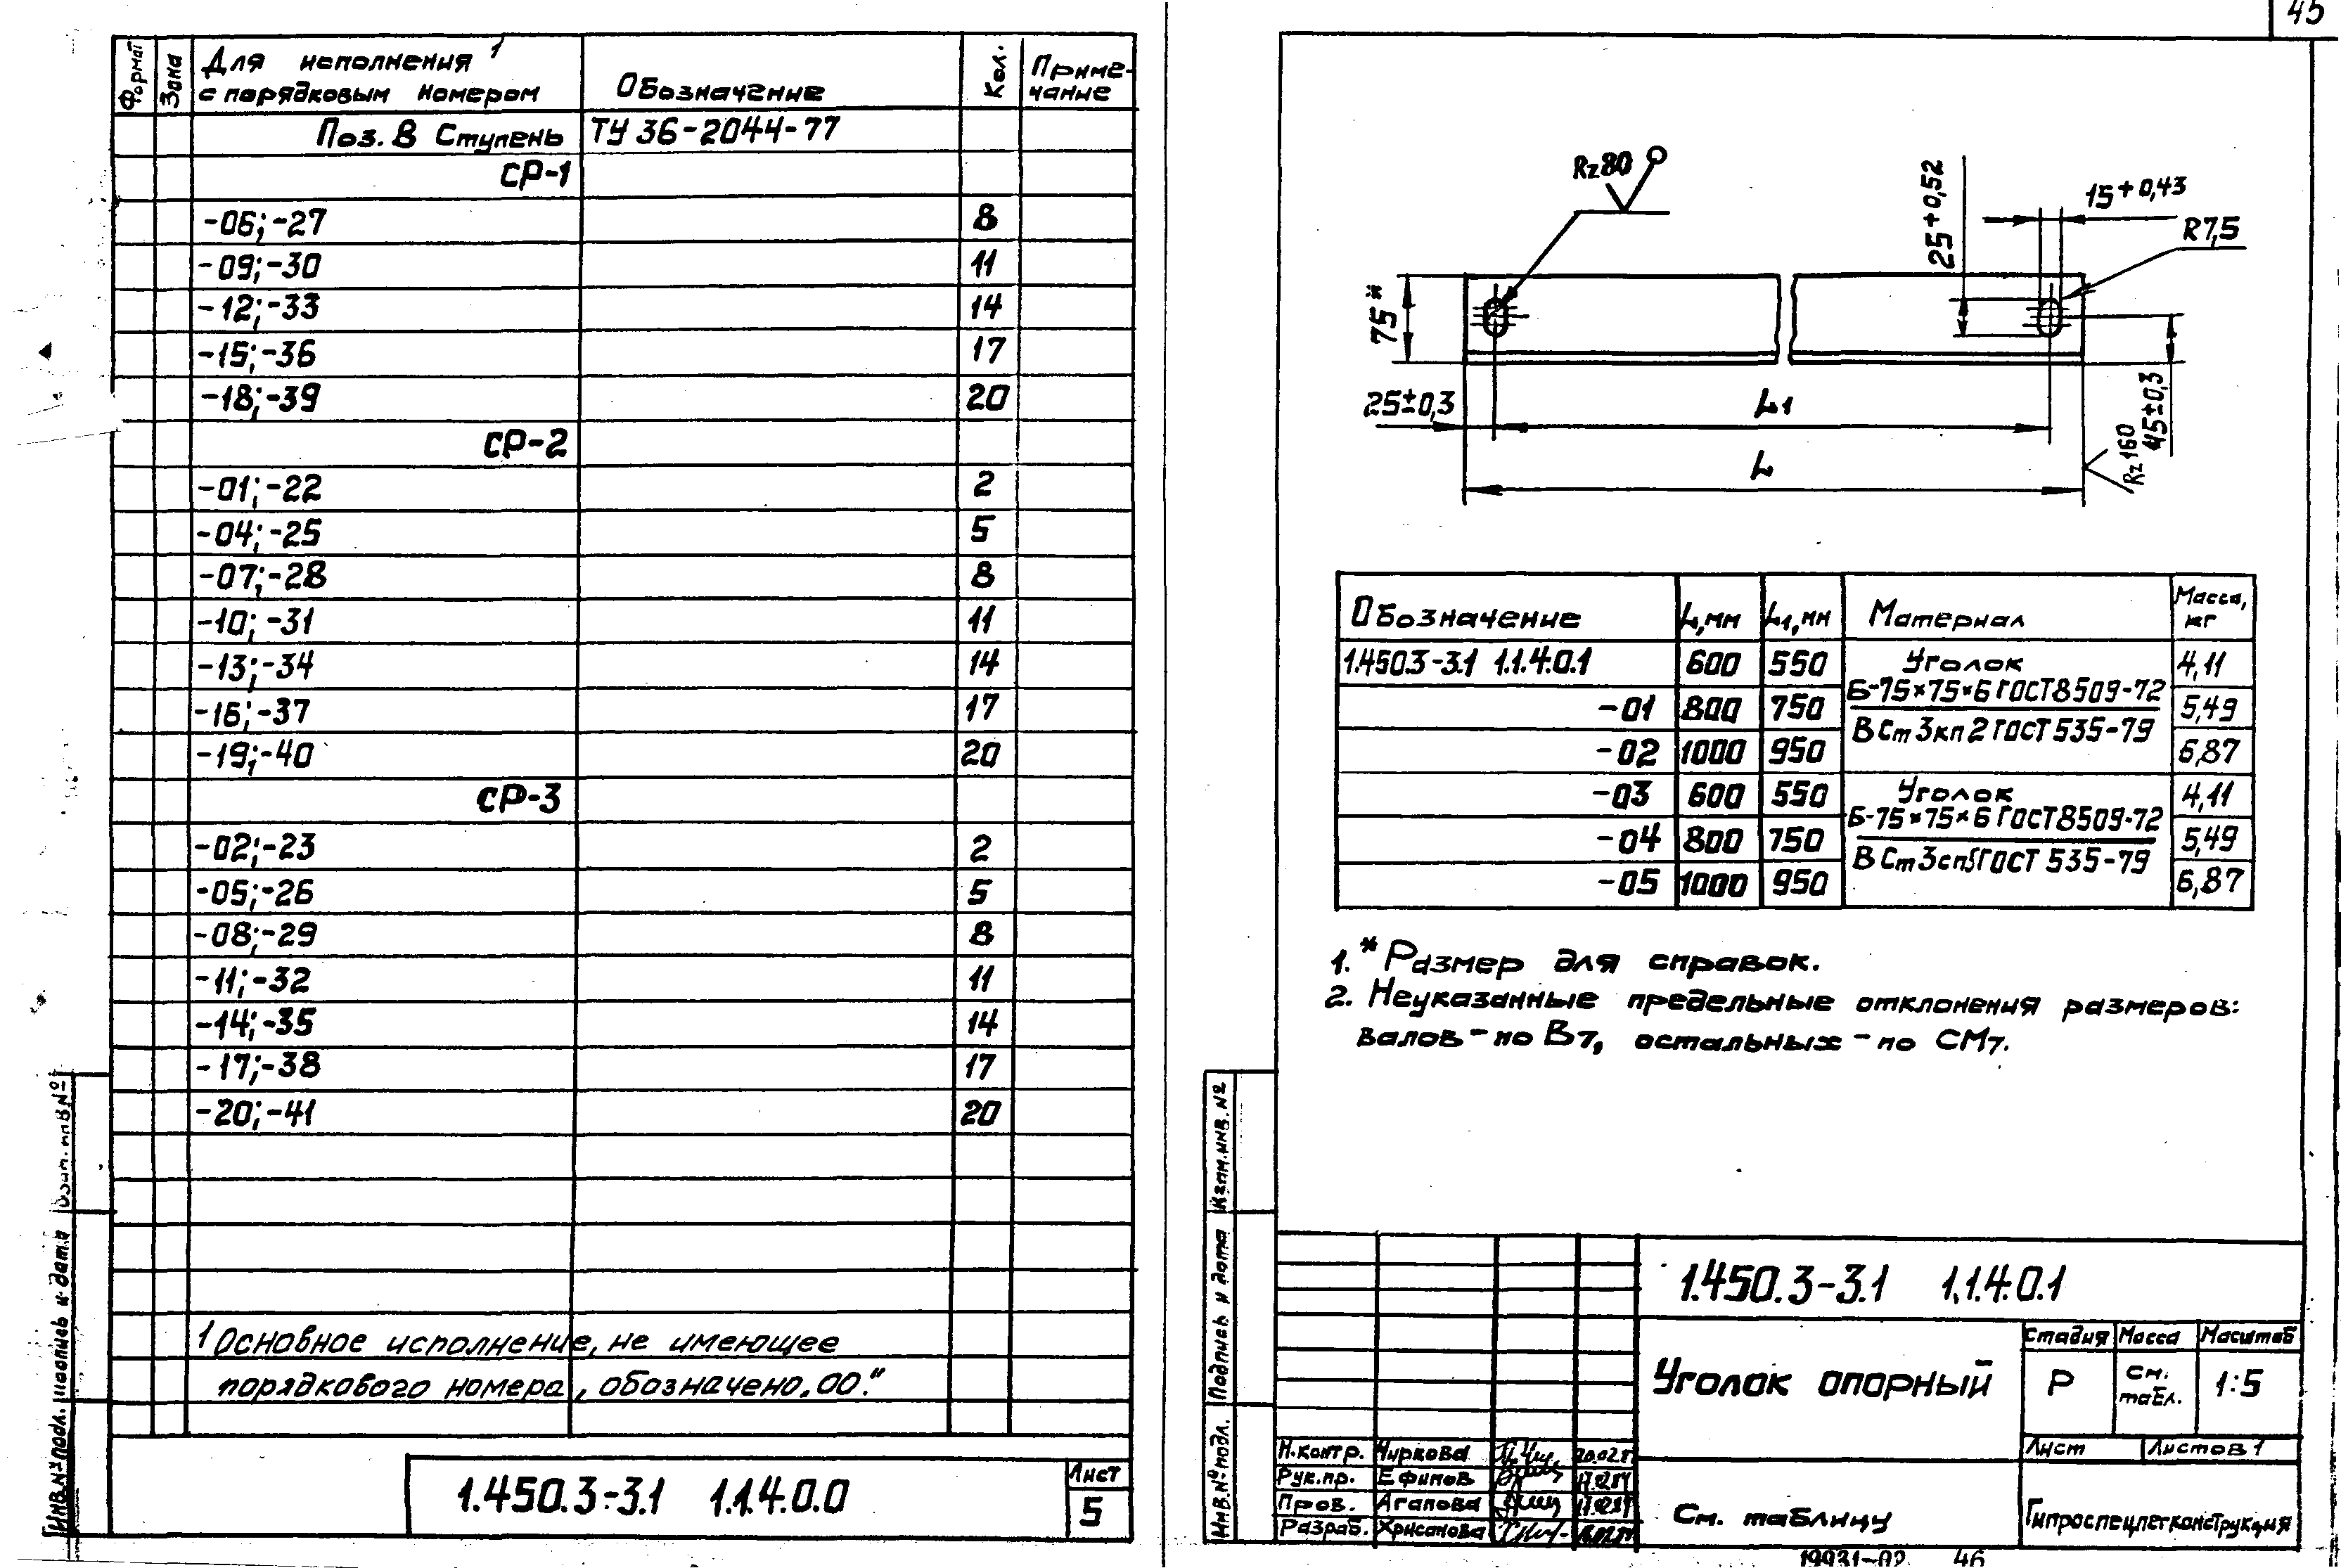 Формат
Зона
Для исполнения 1
с порядковым номером
Обозначение
Кол.
Приме-
чание
Поз. 8 Ступень ТУ 36-2044-77
СР-1
-06; -27 8
-09; -30 11
-12; -33 14
-15; -36 17
-18; -39 20
СР-2
-01; -22 2
-04; -25 5
-07; -28 8
-10; -31 11
-13; -34 14
-16; -37 17
-19; -40 20
СР-3
-02; -23 2
-05; -26 5
-08; -29 8
-11; -32 11
-14; -35 14
-17; -38 17
-20; -41 20
1 Основное исполнение, не имеющее
порядкового номера, обозначено „00."
Инв.№ подл. Подпись и дата
1.450.3-3.1 1.1.4.0.0
Лист
5
45
Rz80
25+0,52
15+0,43
R7,5
75*
25±0,3
L1
L
45±0,3
Rz160
Обозначение L,мм L1,мм Материал Масса, кг
1.450.3-3.1 1.1.4.0.1 600 550 Уголок 4,11
Б-75×75×6 ГОСТ 8509-72
-01 800 750 5,49
ВСт3кп2 ГОСТ 535-79
-02 1000 950 6,87
-03 600 550 Уголок 4,11
Б-75×75×6 ГОСТ 8509-72
-04 800 750 5,49
ВСт3сп5 ГОСТ 535-79
-05 1000 950 6,87
1. * Размер для справок.
2. Неуказанные предельные отклонения размеров:
валов - по В7, остальных - по СМ7.
Инв.№ подл. Подпись и дата Взам.инв.№
1.450.3-3.1 1.1.4.0.1
Уголок опорный
Стадия Масса Масштаб
Р См. табл. 1:5
Лист Листов 1
Н.контр. Чуркова
Рук.пр. Ефимов
Пров. Агапова
Разраб. Хрисанова
См. таблицу
Гипроспецлегконструкция
19931-02 46